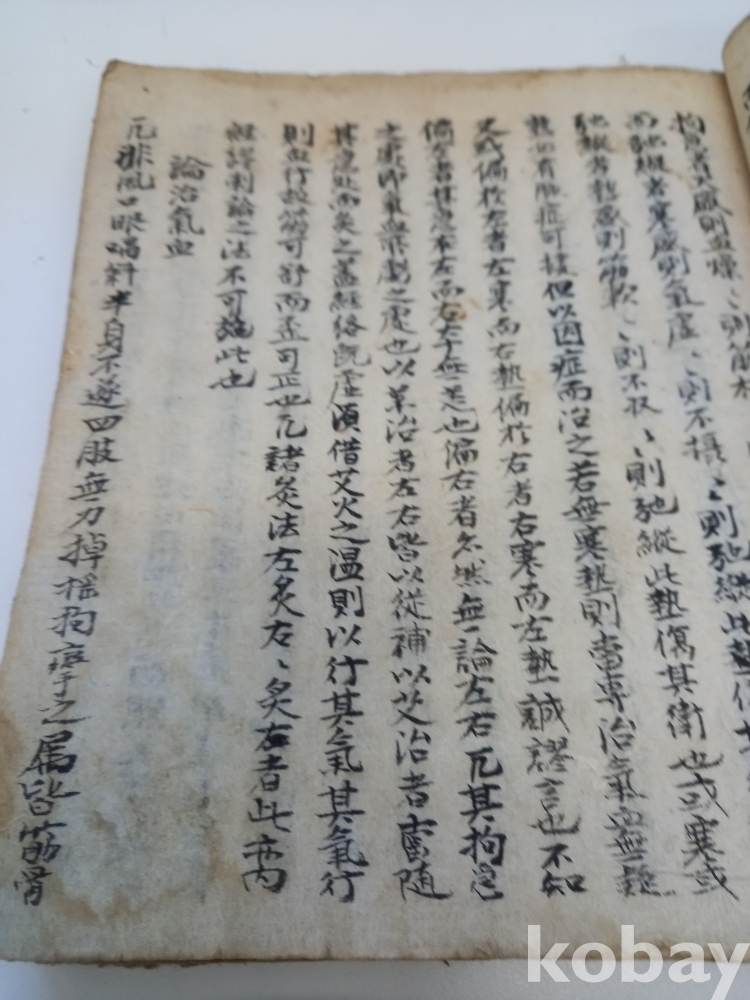 拘急者寒盛則血燥〻則筋
而弛縱者寒盛則氣虛〻則不攝〻則弛縱此
弛縱者熱盛則筋軟〻則不收〻則弛縱此熱傷其衛也或寒或
熱必有脉症可據但以因症而治之若無寒熱則當專治氣血無疑
又或偏於左者左寒而右熱偏於右者右寒而左熱誠謬言也不知
偏左者其急在右而右本無恙也偏右者亦然無論左右凡其拘急
之處即氣血所虧之處也以藥治者左右皆以從補以艾治者當隨
其急處而灸之盖經絡既虛須借艾火之温則以行其氣其氣行
則血行故筋可舒而歪可正也凡諸灸法左灸右〻灸左者此亦內
經謬刺論之法不可施此也
論治氣血
凡非風口眼喎斜半身不遂四肢無力掉搖拘攣之屬皆筋骨
kobay